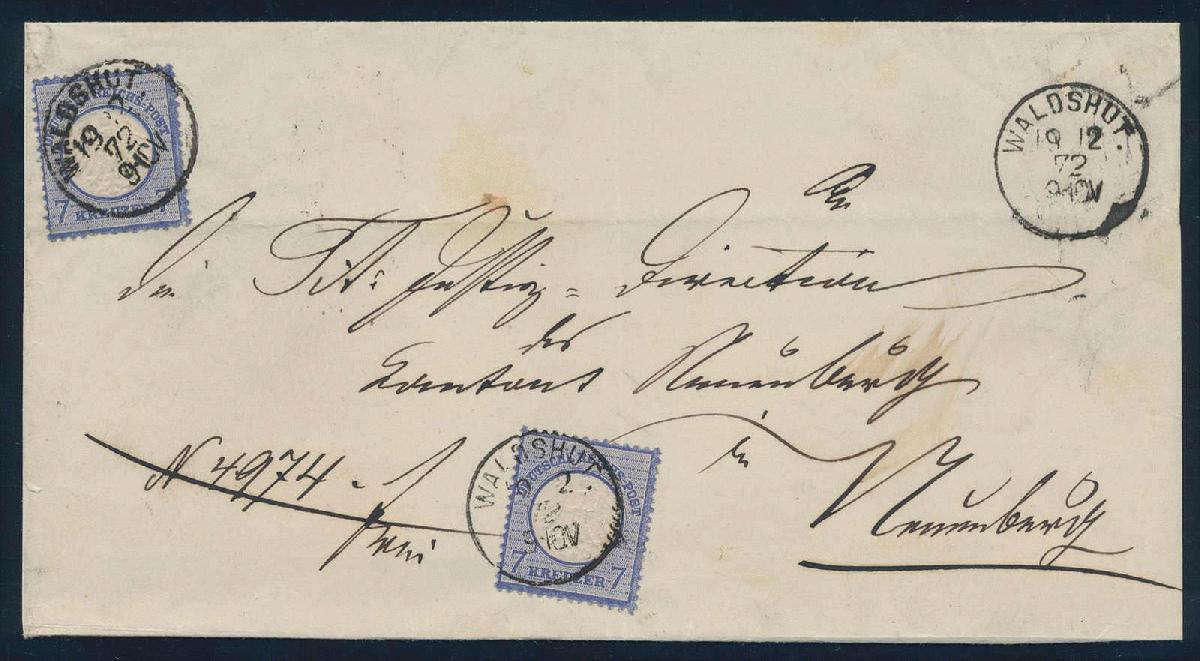 WALDSHUT.
19 12
72
9-10V
DEUTSCHE REICHS-POST
7 KREUZER 7
WALDSHUT.
19 12
72
9-10V
An
die Tit: Justiz = Direction
des
Kantons Neuenburg
in
Neuenburg
N 4974.
frei
WALDSHUT.
DEUTSCHE REICHS-POST
7 KREUZER 7